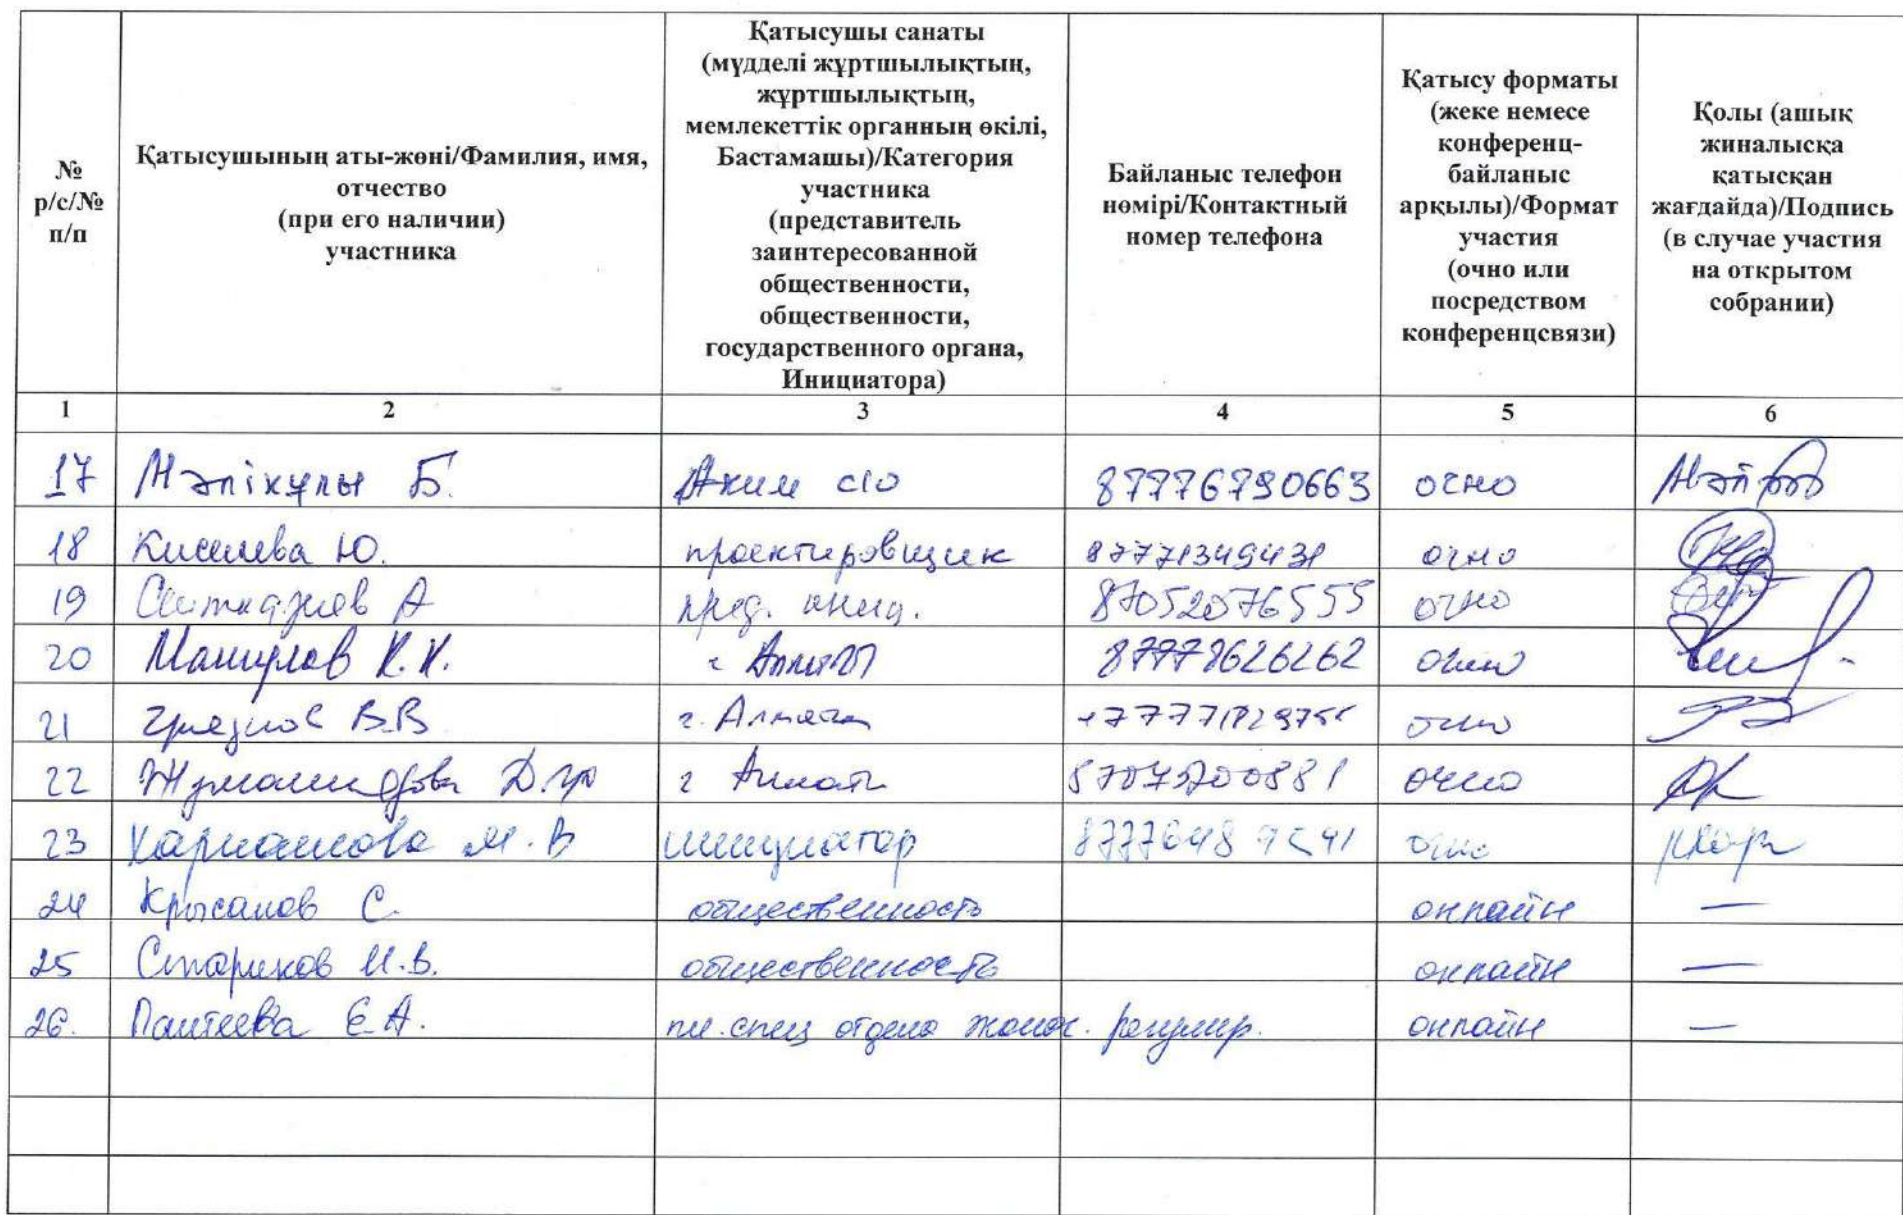 № р/с/№ п/п
Қатысушының аты-жөні/Фамилия, имя, отчество (при его наличии) участника
Қатысушы санаты (мүдделі жұртшылықтың, жұртшылықтың, мемлекеттік органның өкілі, Бастамашы)/Категория участника (представитель заинтересованной общественности, общественности, государственного органа, Инициатора)
Байланыс телефон нөмірі/Контактный номер телефона
Қатысу форматы (жеке немесе конференц-байланыс арқылы)/Формат участия (очно или посредством конференцсвязи)
Қолы (ашық жиналысқа қатысқан жағдайда)/Подпись (в случае участия на открытом собрании)
1 2 3 4 5 6
17 Мәліқұлы Б. Аким с/о 87776790663 очно
18 Киселева Ю. проектировщик 87771349431 очно
19 А пред. иниц. 87052076555 очно
20 К.К. г Алматы 87778626262 очно
21 В.В г. Алматы очно
22 г Алматы 87075700881 очно
23 М.В инициатор очно
24 Крысанов С. общественность онлайн —
25 Стариков И.В. общественность онлайн —
26. Пантеева Е.А. гл. спец отдела регулир. онлайн —